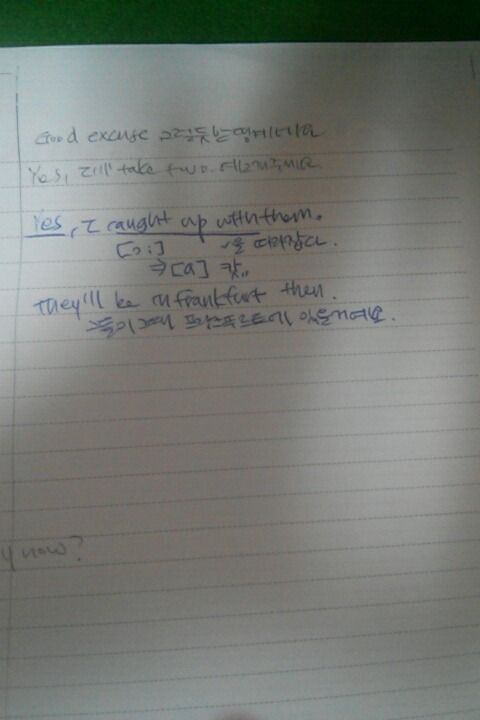 Good excuse 그럴듯한 핑계네요
Yes, I'll take two. 2개주세요
Yes, I caught up with them.
[ɔ:] ~을 따라잡다.
⇒ [a] 캇
They'll be in Frankfurt then.
그들이 그때 프랑크푸르트에 있을거예요.
y now?